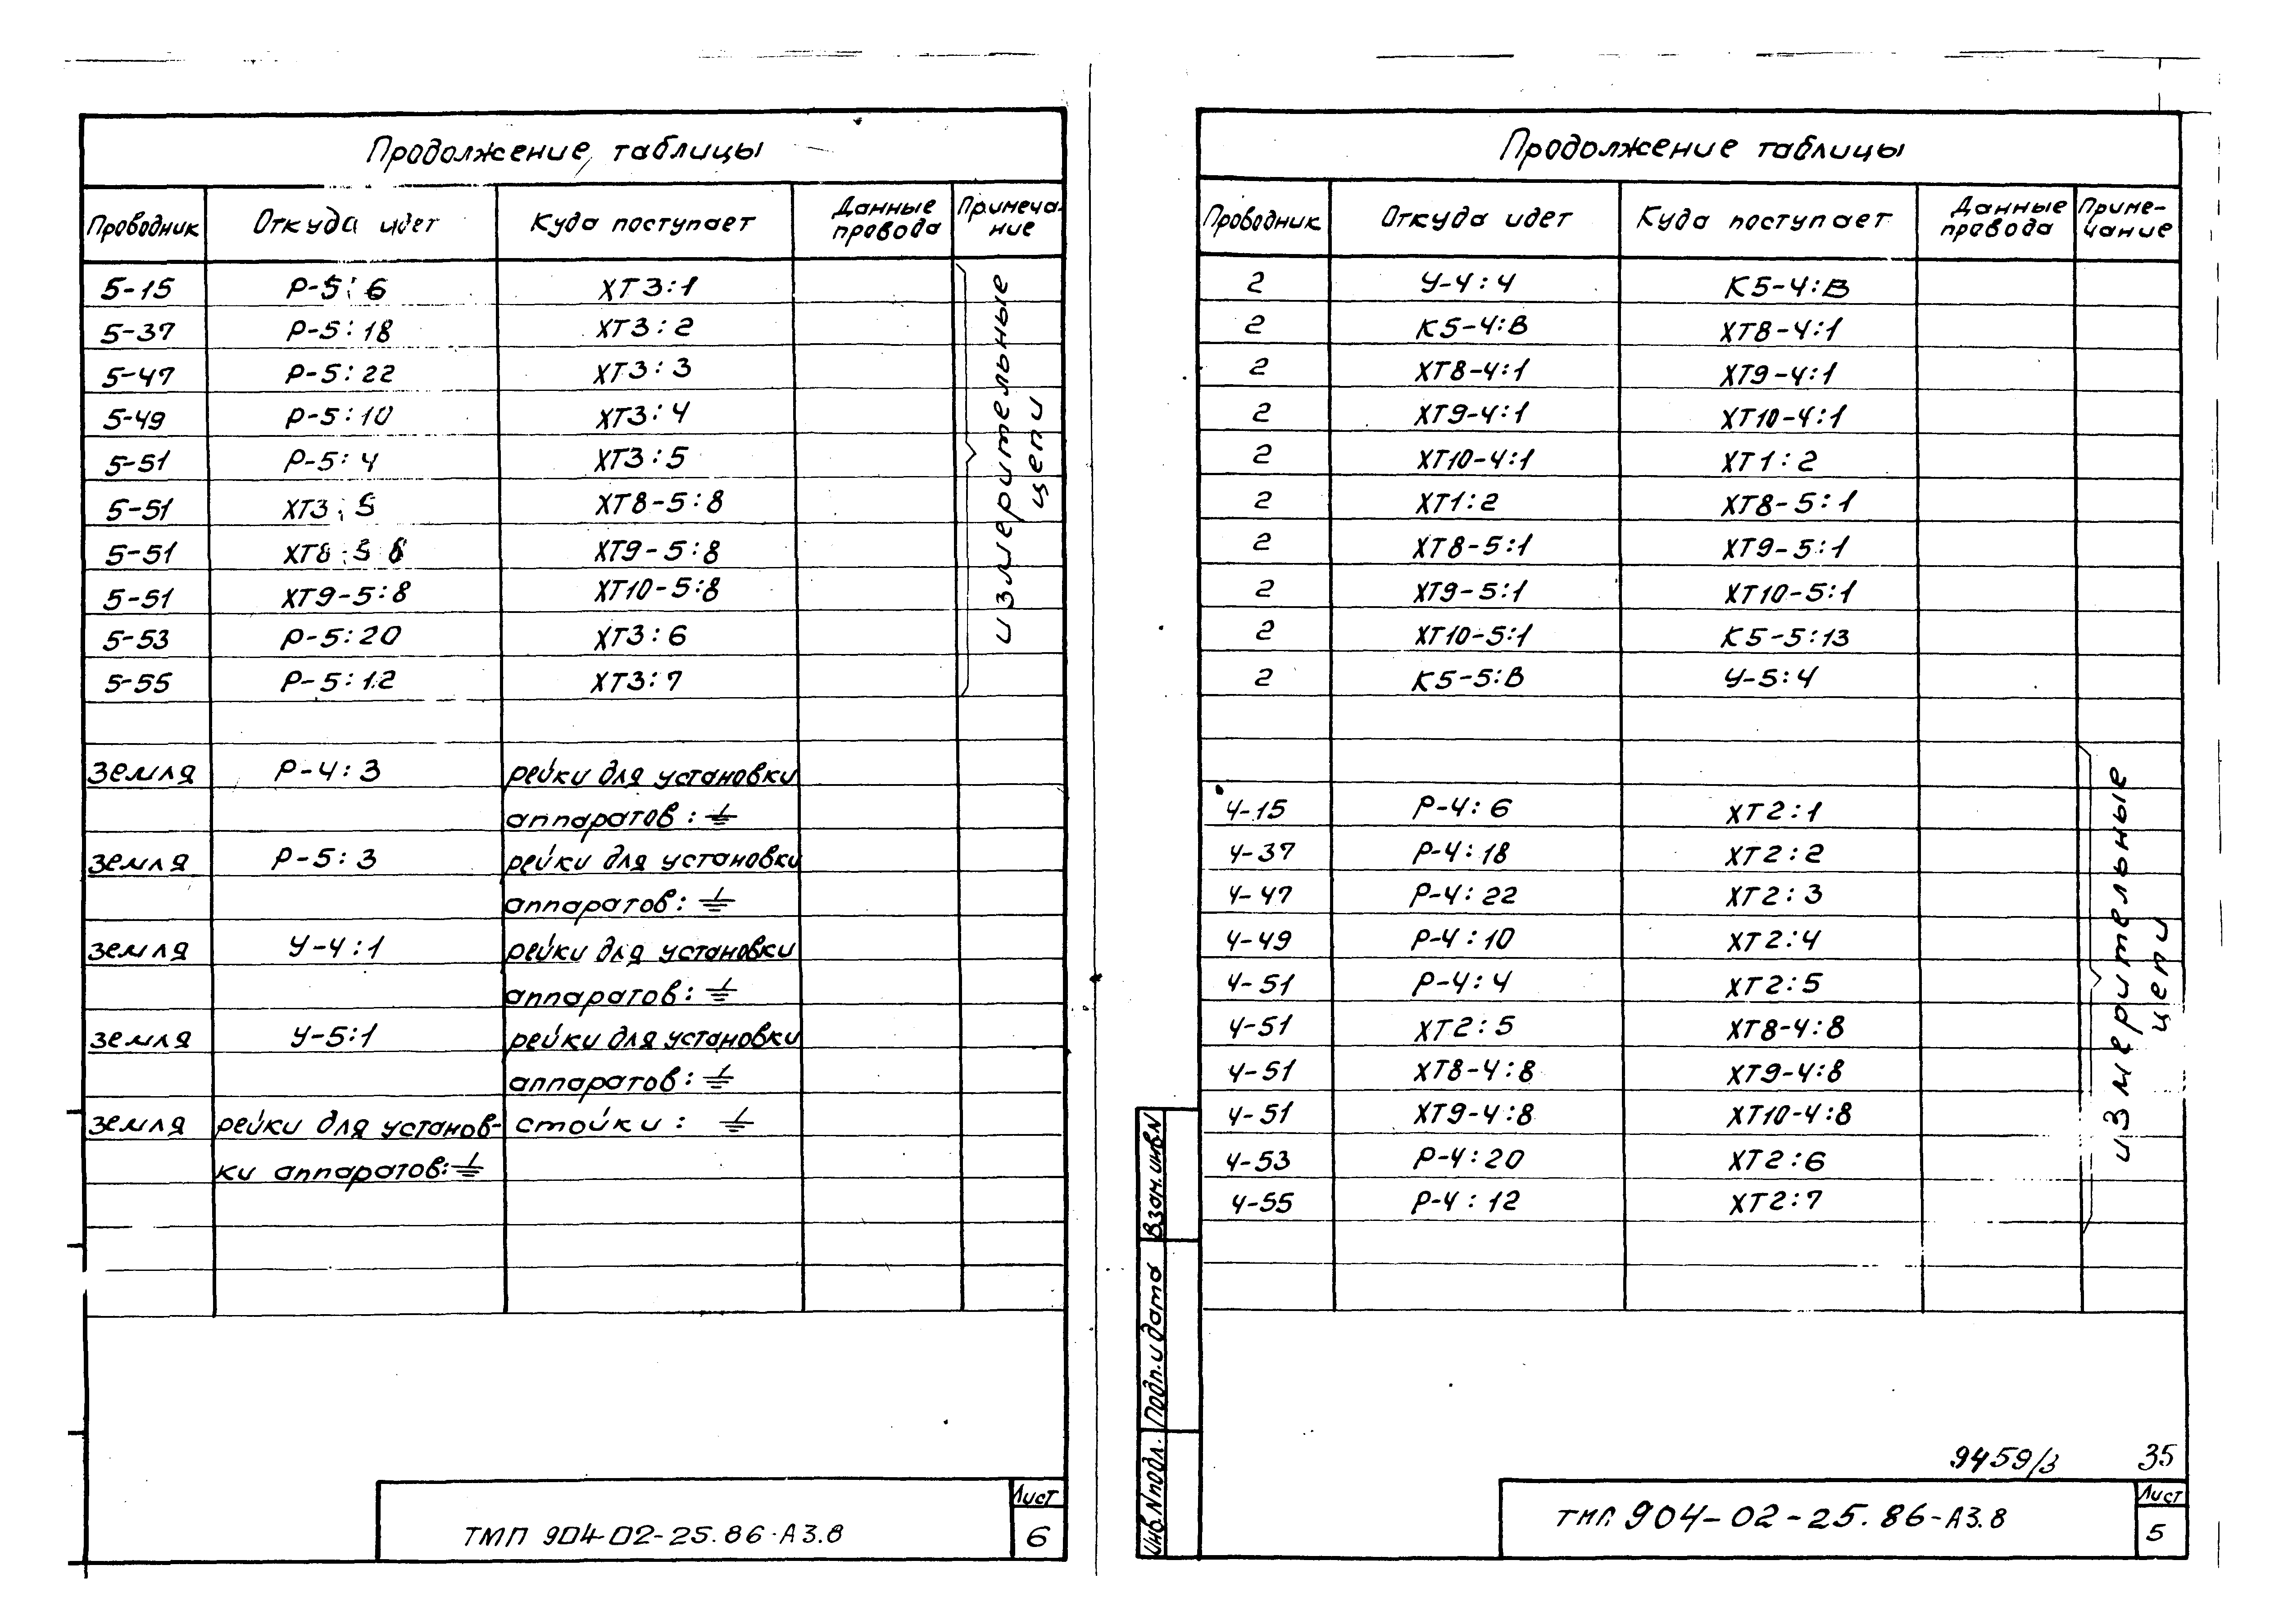 Продолжение таблицы
Проводник Откуда идет Куда поступает Данные провода Примеча-ние
5-15 Р-5:6 ХТ3:1
5-37 Р-5:18 ХТ3:2
5-47 Р-5:22 ХТ3:3
5-49 Р-5:10 ХТ3:4
5-51 Р-5:4 ХТ3:5
5-51 ХТ3:5 ХТ8-5:8
5-51 ХТ8-5:8 ХТ9-5:8
5-51 ХТ9-5:8 ХТ10-5:8
5-53 Р-5:20 ХТ3:6
5-55 Р-5:12 ХТ3:7
измерительные
цепи
земля Р-4:3 рейки для установки
аппаратов: ⏚
земля Р-5:3 рейки для установки
аппаратов: ⏚
земля У-4:1 рейки для установки
аппаратов: ⏚
земля У-5:1 рейки для установки
аппаратов: ⏚
земля рейки для установ- стойки: ⏚
ки аппаратов: ⏚
ТМП 904-02-25.86-А3.8
Лист
6
Продолжение таблицы
Проводник Откуда идет Куда поступает Данные провода Приме-чание
2 У-4:4 К5-4:В
2 К5-4:В ХТ8-4:1
2 ХТ8-4:1 ХТ9-4:1
2 ХТ9-4:1 ХТ10-4:1
2 ХТ10-4:1 ХТ1:2
2 ХТ1:2 ХТ8-5:1
2 ХТ8-5:1 ХТ9-5:1
2 ХТ9-5:1 ХТ10-5:1
2 ХТ10-5:1 К5-5:13
2 К5-5:В У-5:4
4-15 Р-4:6 ХТ2:1
4-37 Р-4:18 ХТ2:2
4-47 Р-4:22 ХТ2:3
4-49 Р-4:10 ХТ2:4
4-51 Р-4:4 ХТ2:5
4-51 ХТ2:5 ХТ8-4:8
4-51 ХТ8-4:8 ХТ9-4:8
4-51 ХТ9-4:8 ХТ10-4:8
4-53 Р-4:20 ХТ2:6
4-55 Р-4:12 ХТ2:7
измерительные
цепи
Взам.инв.N
Подп.и дата
Инв.N подл.
9459/3 35
ТМП 904-02-25.86-А3.8
Лист
5